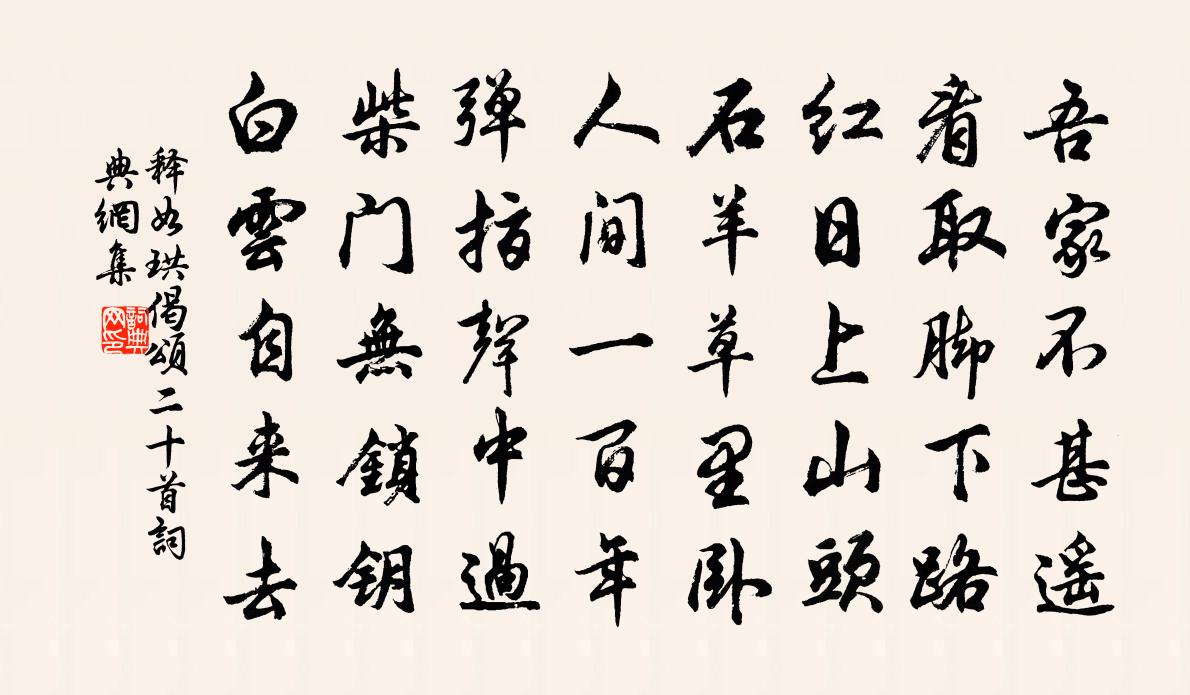 吾家不甚遥
看取脚下路
红日上山頭
石羊草里卧
人间一百年
弹指聲中過
柴门無鎖钥
白雲自来去
释如珙偈颂二十首詞
典網集
詞典
网印